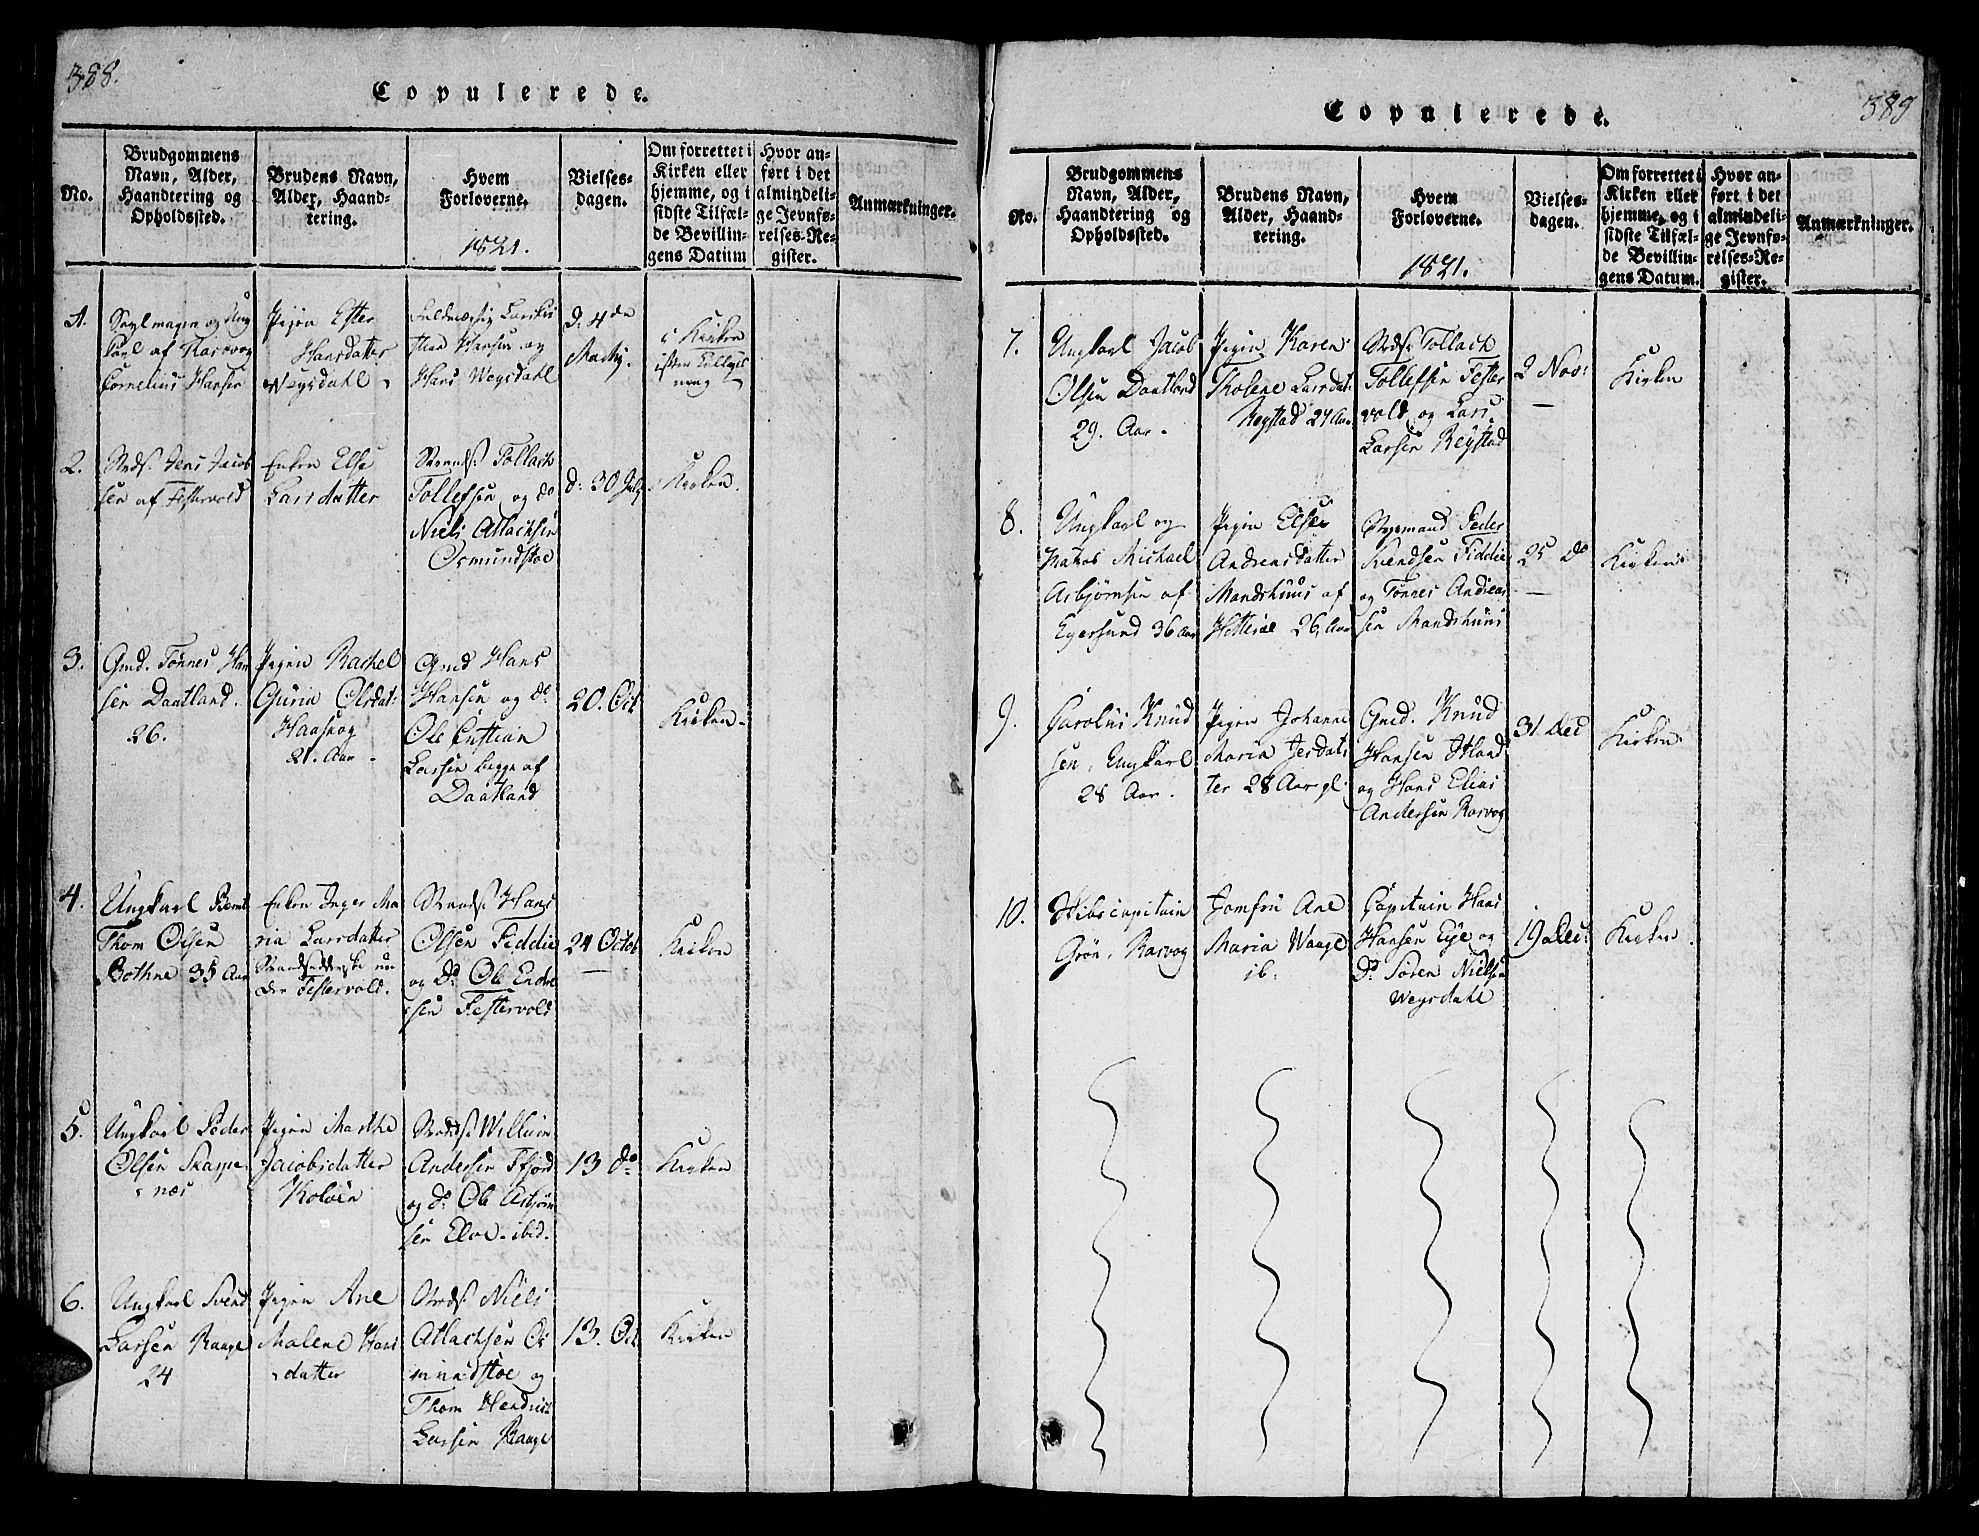 388.
Copulerede.
No.
Brudgommens
Navn, Alder,
Haandtering og
Opholdssted.
Brudens Navn,
Alder, Haand-
tering.
Hvem
Forloverne.
1821.
Vielses-
dagen.
Om forrettet i
Kirken eller
hjemme, og i
sidste Tilfæl-
de Bevillin-
gens Datum
Hvor an-
ført i det
almindeli-
ge Jevnfø-
relses-Re-
gister.
Anmærkninger.
1.
Seylmager og Ung
karl af Rasvog
Cornelius Hansen
Pigen Ester
Hansdatter
Wegsdahl
Hansen og
Hans Wegsdahl
D. 4de
Martij.
i Kirken
2.
Strds. Jens Jacob
sen af Festervold
Enken Else
Larsdatter
Strands. Tollach
Tollefsen og do
Niels Atlachsen
Osmundstoe
d. 30 July
Kirken.
3.
Gmd. Tönnes Han
sen Daatland.
26.
Pigen Rachel
Guria Olsdat:
Haasaog
21. Aar
Gmd Hans
Hansen og do.
Ole Christian
Larsen begge af
Daatland
20. Oct
Kirken
4.
Ungkarl Bernt
Thom Olsen
Bothne 35 Aar
Enken Inger Ma
ria Larsdatter
un
der Festervold.
Strands. Hans
Olsen Fiddie
og Do. Ole Endre
sen Festervold
24 Octob
Kirken
5.
Ungkarl Peder
Olsen Skarpe
næs
Pigen Marthe
Jacobsdatter
Koløen
Strds. Willum
Andersen
og Do. Ole Asbjörn
sen Eloe. ibid.
13 do
Kirken
6.
Ungkarl Svend
Larsen Raage
24
Pigen Ane
Malene Hans
datter
Strds. Niels
Atlachsen Os
mundstoe og
Thom Hendrich
Larsen Raage
13. Oct
Kirken
389
Copulerede.
No.
Brudgommens
Navn, Alder,
Haandtering og
Opholdssted.
Brudens Navn,
Alder, Haand-
tering.
Hvem
Forloverne.
1821.
Vielses-
dagen.
Om forrettet i
Kirken eller
hjemme, og i
sidste Tilfæl-
de Bevillin-
gens Datum.
Hvor an-
ført i det
almindeli-
ge Jevnfø-
relses-Re-
gister.
Anmærkninger.
7.
Ungkarl Jacob
Olsen Daatland
29. Aar.
Pigen Karen
Tholene Larsdat:
Regstad 24 Aar
Strds. Tollach
Tollefsen Fester
vold og Lars
Larsen Regstad
2 Nov:
Kirken
8.
Ungkarl og
Michael
Asbjørnsen af
Egersund 36 Aar
Pigen Else
Andreasdatter
Mandshuus af
Hitteröe 26 Aar
Styrmand Peder
Svendsen Fiddie
og Tönnes Andreas
sen Mandshuus
25 do
Kirken.
9.
Carolus Knud
sen, Ungkarl
28 Aar.
Pigen Johanne
Maria Jersdat
ter 28 Aar gl.
Gmd. Knud
Hansen Stland
og Hans Elias
Andersen Rasvog
31 Dec
Kirken
10.
Skibscapitain
Grön, Rasvog
Jomfru Ane
Maria Waage
ib.
Capitain Hans
Hansen Eye og
Do. Sören Nielsen
Wegsdahl
19 Dec:
Kirken.